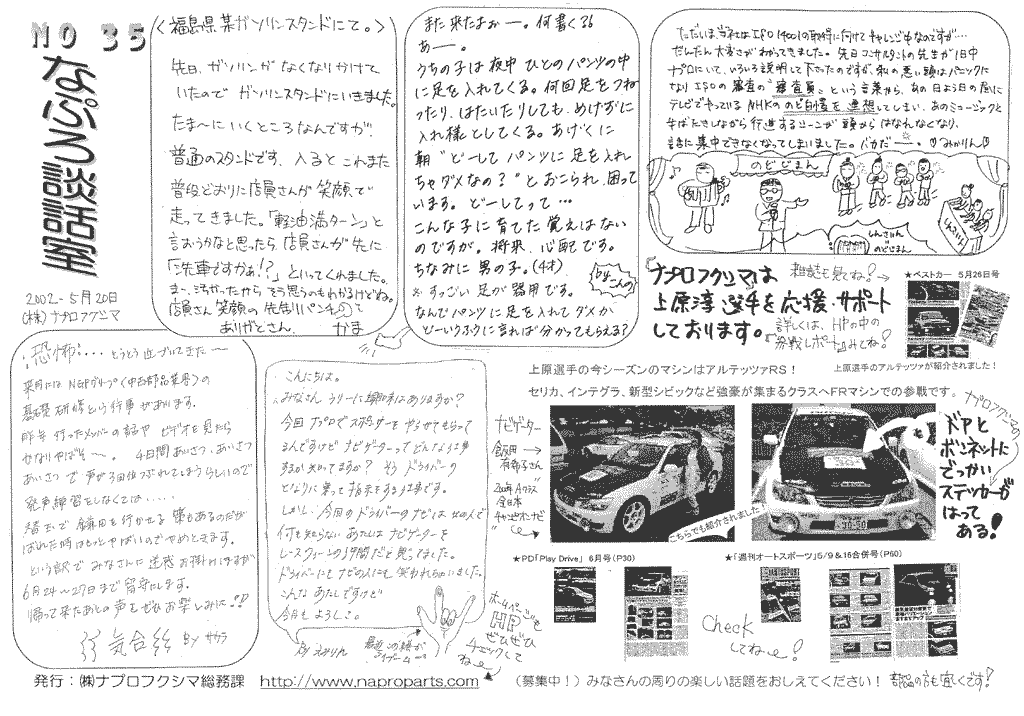 NO 35
なぷろ談話室
2002-5月20日
(株)ナプロフクシマ
〈福島県某ガソリンスタンドにて。〉
先日、ガソリンがなくなりかけて
いたのでガソリンスタンドにいきました。
たま〜にいくところなんですが
普通のスタンドです、入るとこれまた
普段どおりに店員さんが笑顔で
走ってきました。「軽油満ターン」と
言おうかなと思ったら店員さんが先に
「洗車ですかぁ!?」といってくれました。
店員さん笑顔の先制パンチ
ありがとさん。 かま
また来たよぉー。何書くべ
ぁー。
うちの子は夜中ひとのパンツの中
に足を入れてくる。何回足をつね
ったり、はたいたりしても、めげずに
入れ様としてくる。あげくに
朝“どーしてパンツに足を入れ
ちゃダメなの?”とおこられ、困って
います。どーしてって…
こんな子に育てた覚えはない
のですが。将来、心配です。
ちなみに男の子。(4才)
※すっごい足が器用です。
なんでパンツに足を入れてダメか
どーいうふうに言えば分かってもらえる?
byこんの
ただいま当社はISO14001の取得に向けてチャレンジ中なのですが…
だんだん大変さがわかってきました。先日コンサルタントの先生が1日中
ナプロにいて、いろいろ説明して下さったのですが、私の悪い頭はパニックに
なりISOの審査の“審査員”という言葉から、あの日よう日の昼に
テレビでやっているNHKののど自慢を連想してしまい、あのミュージックと
手ばたきしながら行進するシーンが頭からはなれなくなり、
話に集中できなくなってしまいました。バカだー。♡みかりん♡
のどじまん
しんさいん
のどじまん
しんさいん
ナプロフクシマは
上原淳選手を応援、サポート
しております。
雑誌も見てね!
詳しくは、HPの中の
参戦レポートみてね!
★ベストカー 5月26日号
上原選手のアルテッツァが紹介されました!
上原選手の今シーズンのマシンはアルテッツァRS!
セリカ、インテグラ、新型シビックなど強豪が集まるクラスへFRマシンでの参戦です。
ナビゲーター
飯田
有希子さん
2000年Aクラス
全日本
チャンピオンナビ
ナプロフクシマの
ドアと
ボンネットに
でっかい
ステッカーが
はって
ある!
こちらでも紹介されました!
★PD「Play Drive」 6月号(P30)
★「週刊オートスポーツ」5/9&16合併号(P60)
Check
してね!
恐怖…とうとう近づいてきた〜
来月にはNGPグループ(中古部品業界)の
基礎研修という行事があります。
昨年行ったメンバーの話やビデオを見たら
かなりやばい〜。4日間あいさつ、あいさつ
あいさつで声が3回位つぶれてしまうらしいので
発声練習をしなくては…
ばれた時はもっとやばいのでやめときます。
という訳でみなさんに迷惑お掛けしますが
6月24〜27日まで留守にします。
帰って来たあとの声をぜひお楽しみに!!
気合 by サクラ
こんにちは。
みなさんラリーには興味はありますか?
今回ナプロでスポンサーをやらせてもらって
るんですけどナビゲーターってどんな仕事
するか知ってますか? そうドライバーの
となりに乗って指示をする仕事です。
しかし今回のドライバーのナビは女の人で
何も知らないあたしはナビゲーターを
レースクィーンのお仲間だと思ってました。
ドライバーにもナビの人にも笑われちゃいました。
こんなあたしですけど
今月もよろしこ。
by えみりん
ホームページも
HP
ぜひぜひ
チェックして
ねー
発行:㈱ナプロフクシマ総務課 http://www.naproparts.com (募集中!)みなさんの周りの楽しい話題をおしえてください! 部品の方も宜しくです!